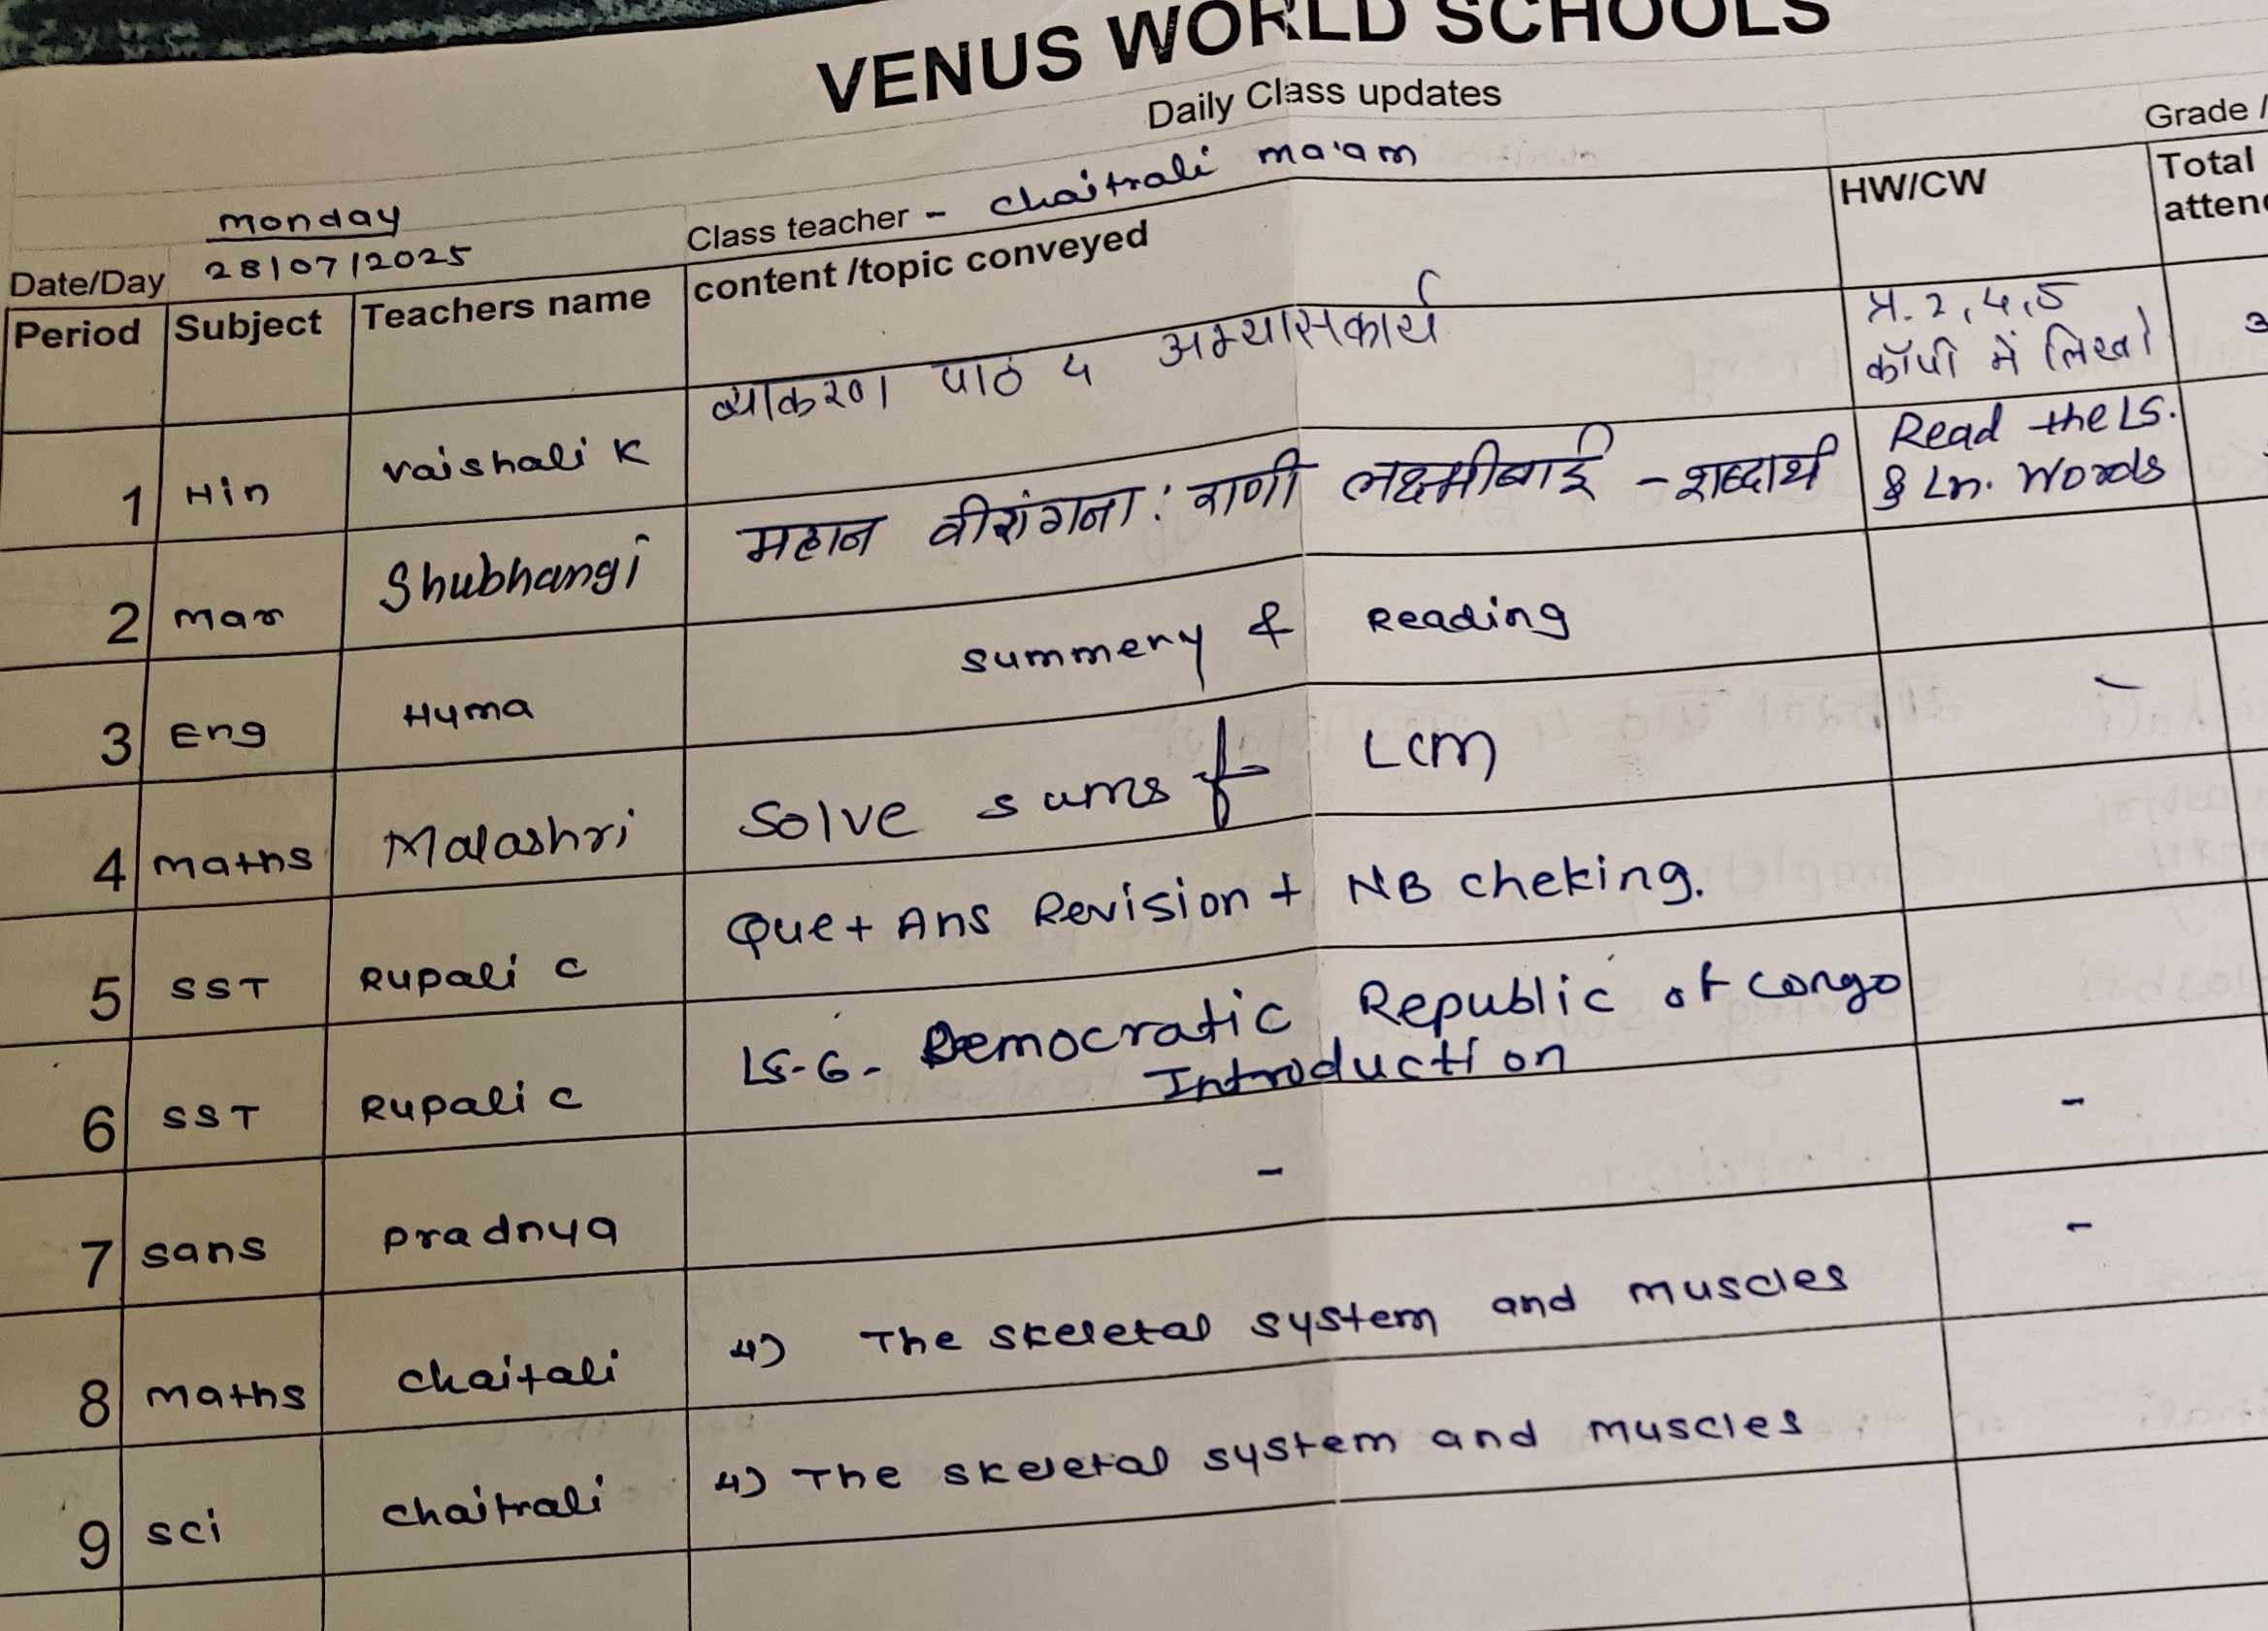 VENUS WORLD SCHOOLS
Daily Class updates
Grade /
monday
Date/Day 28/07/2025 Class teacher - chaitrali ma'am
Period Subject Teachers name content /topic conveyed HW/CW Total
atten
1 Hin vaishali K व्याकरण पाठ ५ अभ्यासकार्य प्र. 2, 4, 5
कॉपी में लिखो
2 mar Shubhangi महान वीरांगना : राणी लक्ष्मीबाई - शब्दार्थ Read the LS.
& Ln. Words
3 Eng Huma summery & Reading
4 maths Malashri Solve sums of LCM -
5 SST Rupali C Que + Ans Revision + NB cheking.
6 SST Rupali C LS-6 - Democratic Republic of congo
Introduction
7 sans pradnya - -
8 maths chaitali 4) The skeletal system and muscles -
9 sci chaitrali 4) The skeletal system and muscles